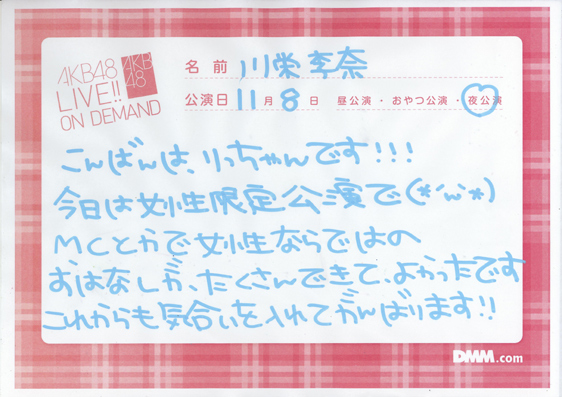 AKB48
LIVE!!
ON DEMAND
AKB
48
名前 川栄李奈
公演日 11月8日 昼公演・おやつ公演・夜公演
こんばんは、りっちゃんです!!!
今日は女性限定公演で(*´ω`*)
MCとかで女性ならではの
おはなしが、たくさんできて、よかったです
これからも気合いを入れてがんばります!!
DMM.com